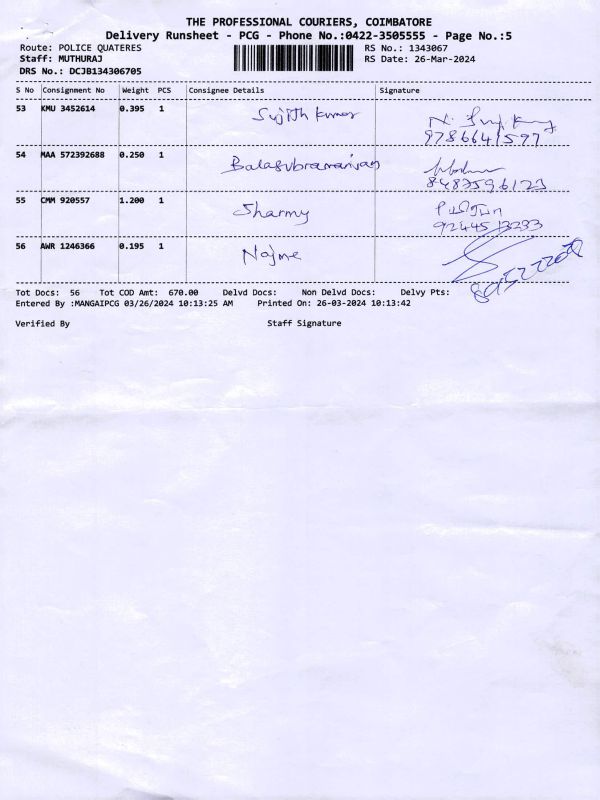 THE PROFESSIONAL COURIERS, COIMBATORE
Delivery Runsheet - PCG - Phone No.:0422-3505555 - Page No.:5
Route: POLICE QUATERES RS No.: 1343067
Staff: MUTHURAJ RS Date: 26-Mar-2024
DRS No.: DCJB134306705
S No Consignment No Weight PCS Consignee Details Signature
53 KMU 3452614 0.395 1 Sujith kumar
9786641597
54 MAA 572392688 0.250 1 Balasubramaniyan
8487596123
55 CMM 920557 1.200 1 Sharmy
9244513233
56 AWR 1246366 0.195 1 Najme
Tot Docs: 56 Tot COD Amt: 670.00 Delvd Docs: Non Delvd Docs: Delvy Pts:
Entered By :MANGAIPCG 03/26/2024 10:13:25 AM Printed On: 26-03-2024 10:13:42
Verified By Staff Signature